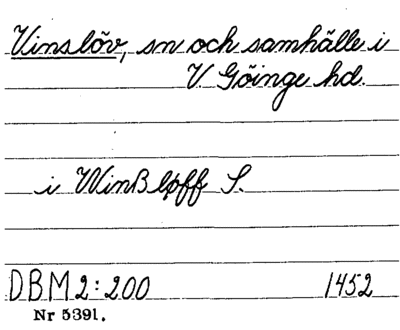 Vinslöv, sn och samhälle i
V. Göinge hd.
i WinBløff S.
DBM 2:200 1452
Nr 5391.